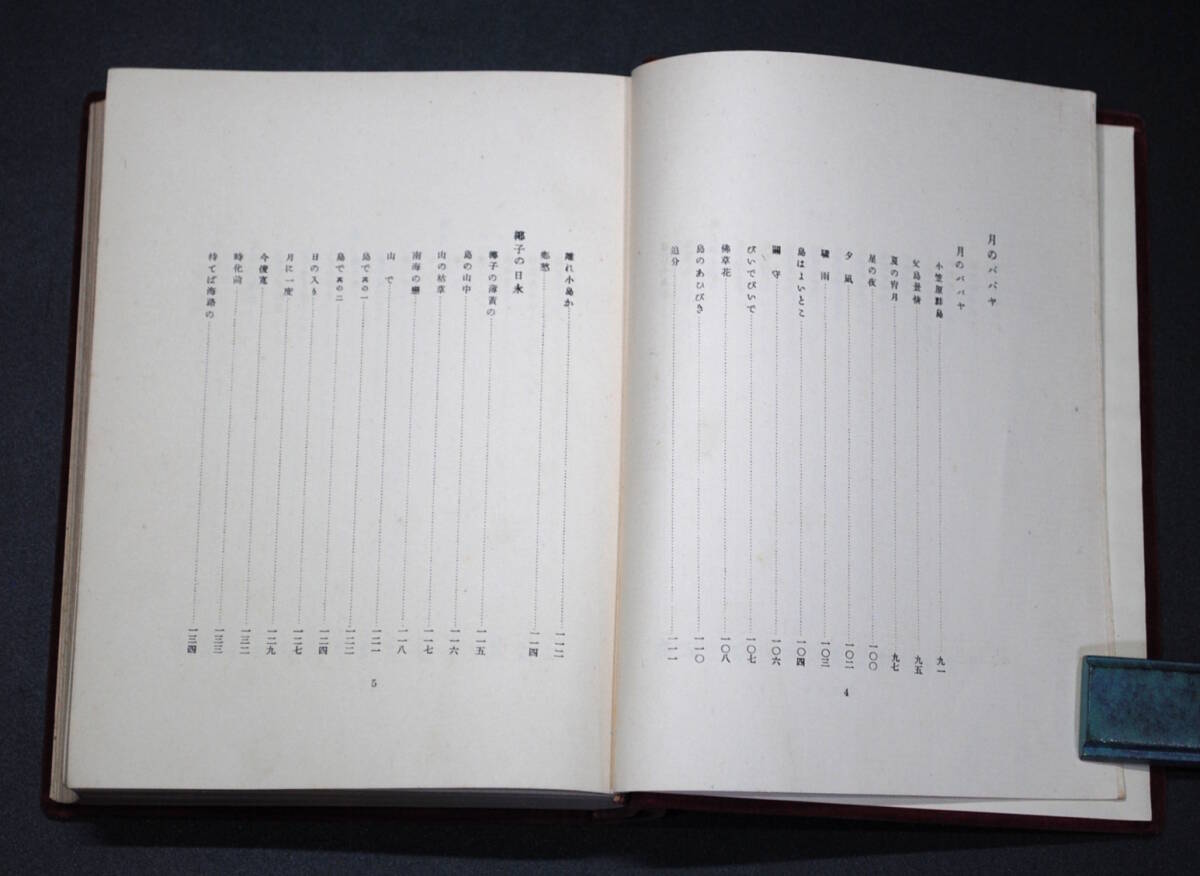 月のパパヤ
月のパパヤ
小笠原群島 九一
父島景情 九五
夏の宵月 九七
星の夜 一〇〇
夕凪 一〇二
驟雨 一〇三
島はよいとこ 一〇四
關守 一〇六
びいでびいで 一〇七
佛草花 一〇八
島のあひびき 一一〇
追分 一一一
4
離れ小島か 一一二
愁 一一四
椰子の日永
椰子の薄黄の 一一五
島の山中 一一六
山の枯草 一一七
南海の戀 一一八
山で 一二一
島で 其の一 一二二
島で 其の二 一二四
日の入り 一二七
月に一度 一二九
今度 一三二
時化前 一三三
待てば海路の 一三四
5